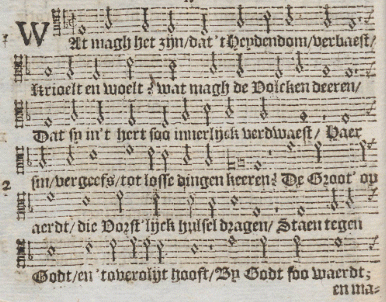 WAt magh het zijn/dat 't Heydendom/verbaest/
krioelt en woelt? wat magh de Volcken deeren/
Dat sy in't hert soo innerlijck verdwaest/ Haer
sin/vergeefs/tot losse dingen keeren? De Groot' op
2
aerdt/die Vorst'lijck hulsel dragen/ Staen tegen
Godt/en 't overolijt hooft/By Godt soo waerdt;
en ma-